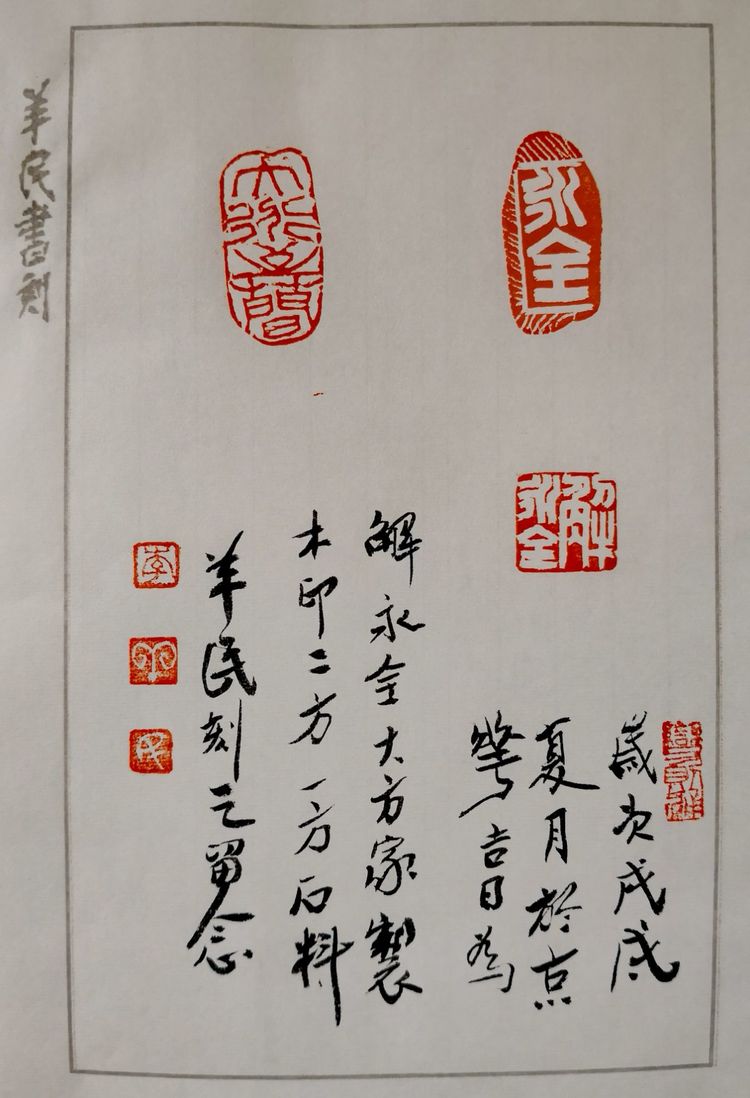 永全
大道至簡
解永全
歲次戊戌
夏月於京
吉日為
解永全大方家製
木印二方一方石料
羊民刻之留念
李
羊
民
羊民書刻